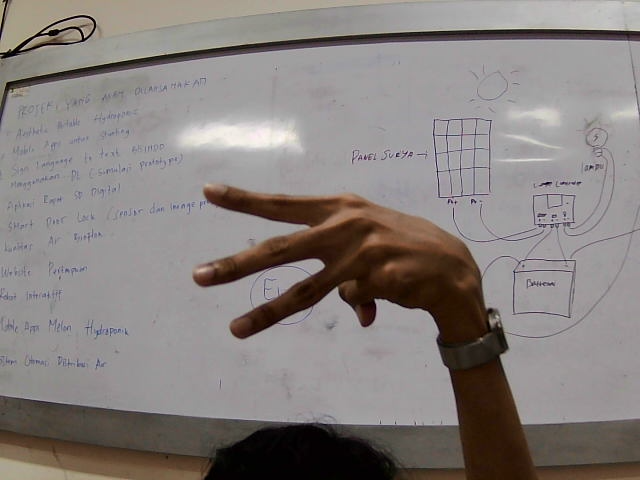 PROJEK YANG AKAN DILAKSANAKAN
Aesthetic Portable Hydroponic
Mobile Apps untuk Stunting
Sign Language to text BISINDO
Menggunakan DL (Simulasi prototype)
Aplikasi Rapor SD Digital
Smart Door Lock (Sensor dan image
Kualitas Air
Website
Robot Interaktif
Mobile Apps Melon Hydroponik
Sistem Otomasi Distribusi Air
PANEL SURYA
LAMPU
BATERAI